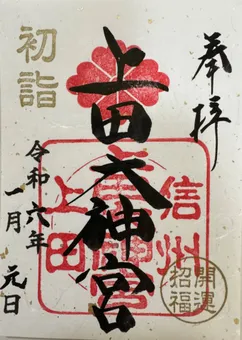 奉拝
上田大神宮
初詣
令和六年
一月 元日
信州
上田
開運
招福